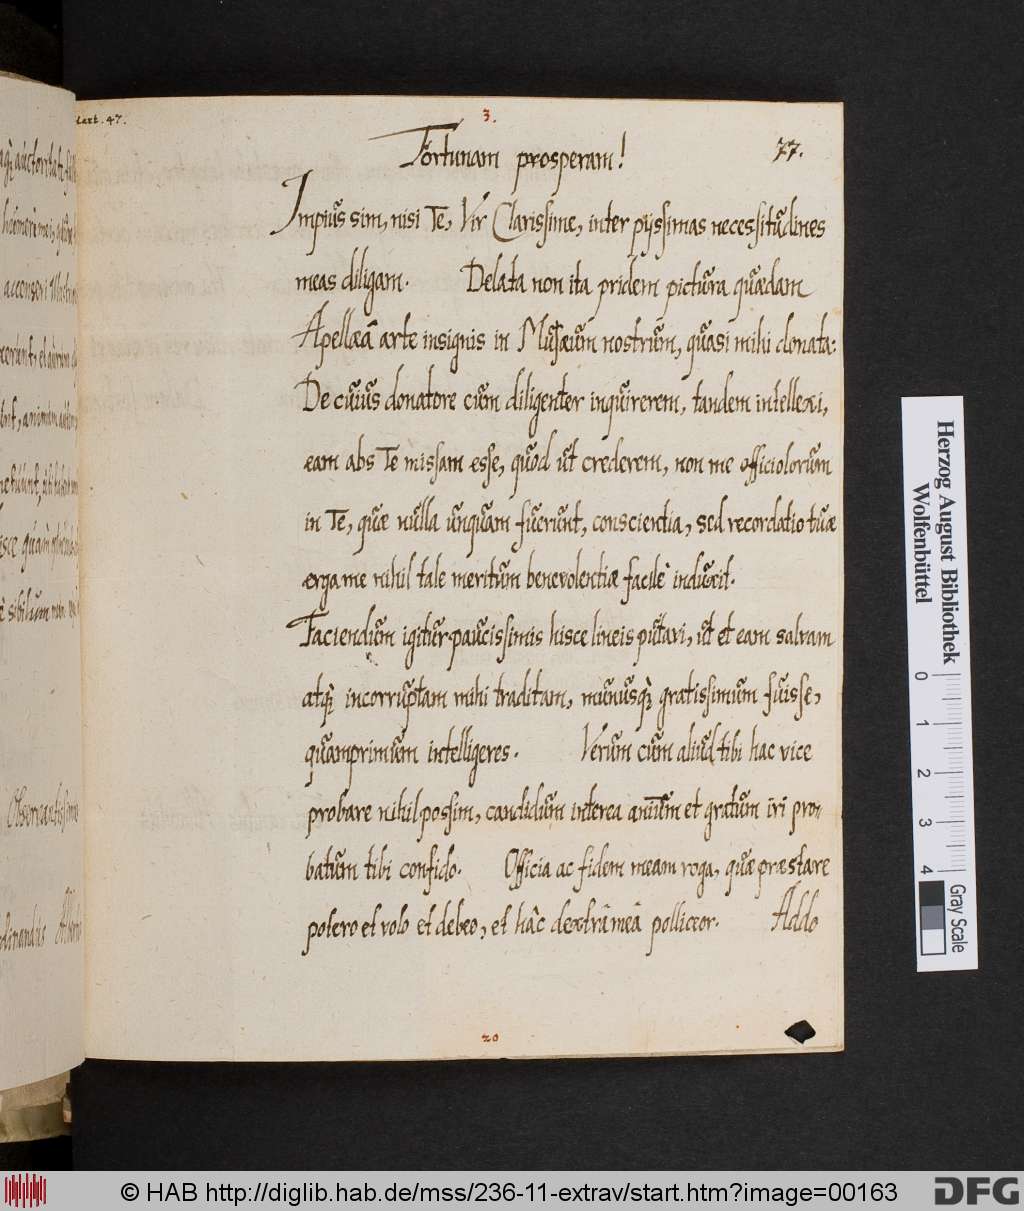 3.
77.
Fortunam prosperam!
Impius sim, nisi Te, Vir Clarissime, inter pijssimas necessitudines
meas diligam. Delata non ita pridem pictura quædam
Apellæâ arte insignis in Musæum nostrum, quasi mihi donata:
De cuius donatore cum diligenter inquirerem, tandem intellexi,
eam abs Te missam esse, quod ut crederem, non me officiolorum
in Te, quæ nulla unquam fuerunt, conscientia, sed recordatio tuæ
erga me nihil tale meritum benevolentiæ facile induxit.
Faciendum igitur paucissimis hisce lineis putavi, ut et eam salvam
atq; incorruptam mihi traditam, munusq; gratissimum fuisse,
quamprimum intelligeres. Verum cum aliud tibi hac vice
probare nihil possim, candidum interea animum et gratum iri pro-
batum tibi confido. Officia ac fidem meam roga, quæ præstare
potero et volo et debeo, et hâc dextrâ meâ polliceor. Addo
20
Herzog August Bibliothek
Wolfenbüttel
0 1 2 3 4
Gray Scale
© HAB http://diglib.hab.de/mss/236-11-extrav/start.htm?image=00163
DFG